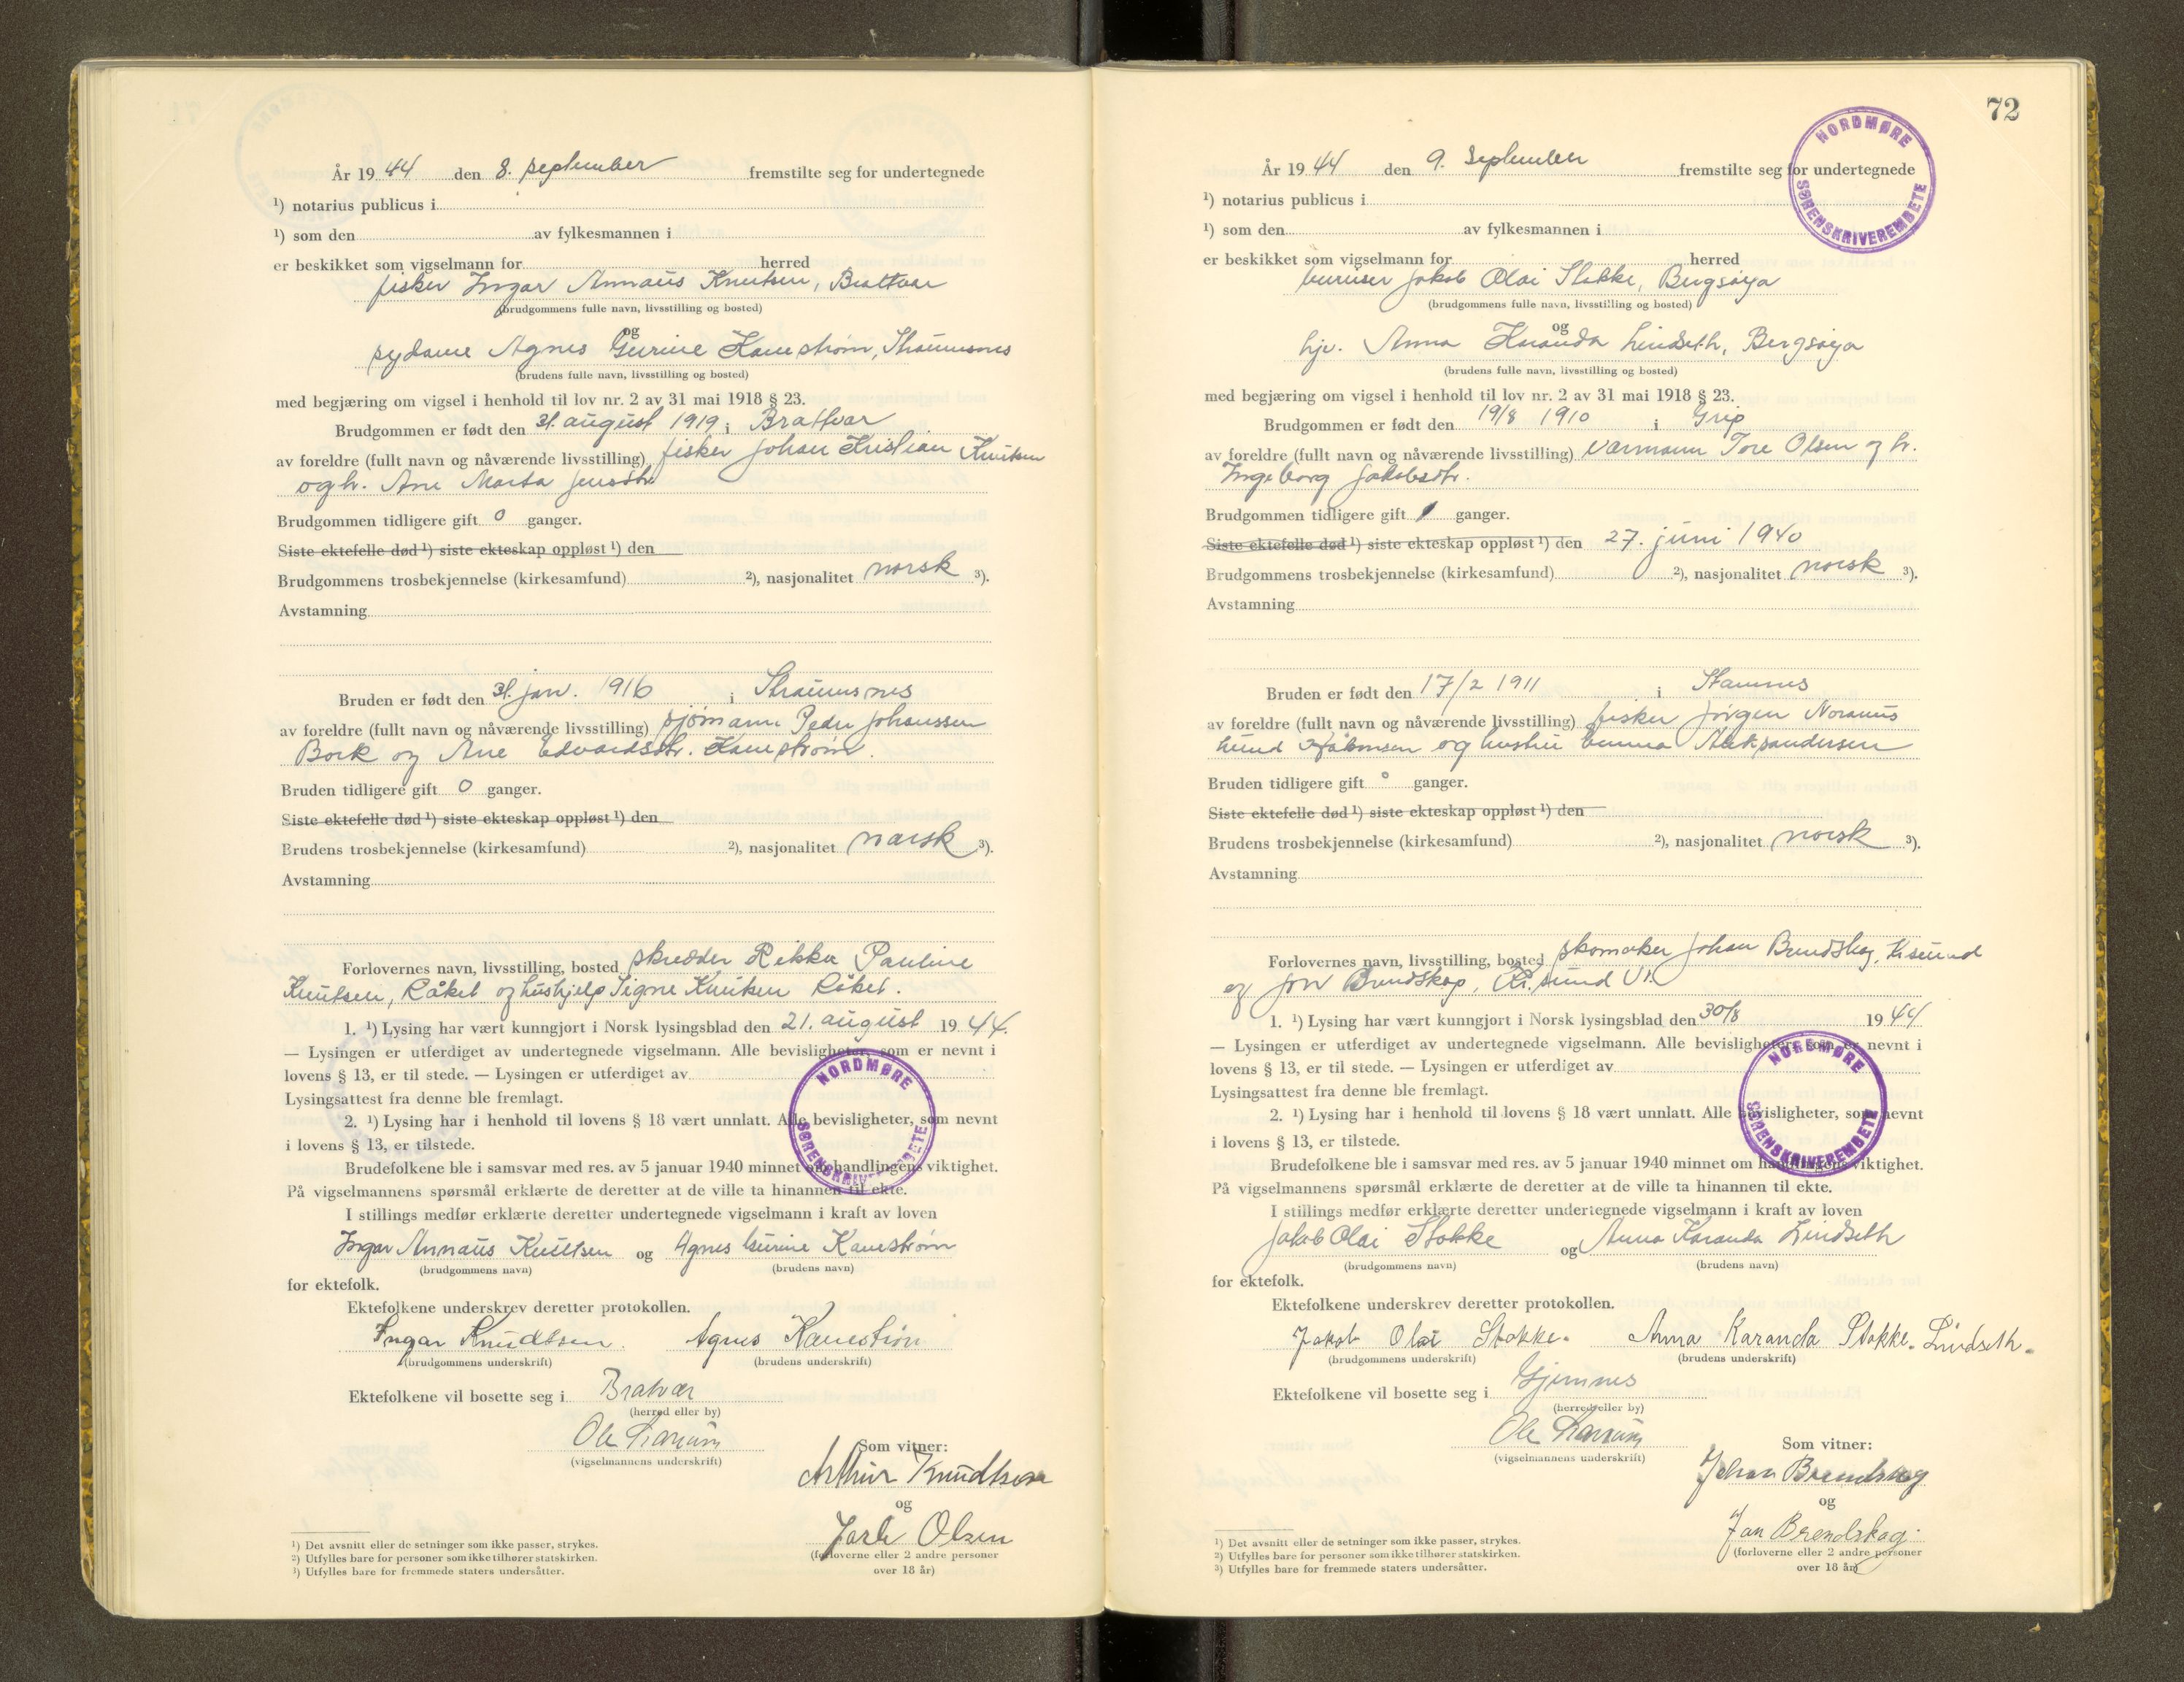 År 1944 den 8. september fremstilte seg for undertegnede
¹) notarius publicus i
¹) som den av fylkesmannen i
er beskikket som vigselmann for herred
fisker Ingar Annæus Knutsen, Brattvær
(brudgommens fulle navn, livsstilling og bosted)
og
sydame Agnes Gurine Kanestrøm, Straumsnes
(brudens fulle navn, livsstilling og bosted)
med begjæring om vigsel i henhold til lov nr. 2 av 31 mai 1918 § 23.
Brudgommen er født den 31. august 1919 i Brattvær
av foreldre (fullt navn og nåværende livsstilling) fisker Johan Kristian Knutsen
og h. Ane Marta Jensdtr.
Brudgommen tidligere gift 0 ganger.
Siste ektefelle død ¹) siste ekteskap oppløst ¹) den
Brudgommens trosbekjennelse (kirkesamfund) ²), nasjonalitet norsk ³).
Avstamning
Bruden er født den 31. jan. 1916 i Straumsnes
av foreldre (fullt navn og nåværende livsstilling) sjømann Peder Johanssen
Bock og Ane Edvardsdtr. Kanestrøm.
Bruden tidligere gift 0 ganger.
Siste ektefelle død ¹) siste ekteskap oppløst ¹) den
Brudens trosbekjennelse (kirkesamfund) ²), nasjonalitet norsk ³).
Avstamning
Forlovernes navn, livsstilling, bosted skredder Rikka Pauline
Knutsen, Råket og hushjelp Signe Knutsen Råket.
1. ¹) Lysing har vært kunngjort i Norsk lysingsblad den 21. august 1944.
— Lysingen er utferdiget av undertegnede vigselmann. Alle bevisligheter, som er nevnt i
lovens § 13, er til stede. — Lysingen er utferdiget av
Lysingsattest fra denne ble fremlagt.
2. ¹) Lysing har i henhold til lovens § 18 vært unnlatt. Alle bevisligheter, som nevnt
i lovens § 13, er tilstede.
Brudefolkene ble i samsvar med res. av 5 januar 1940 minnet om handlingens viktighet.
På vigselmannens spørsmål erklærte de deretter at de ville ta hinannen til ekte.
NORDMØRE SØRENSKRIVEREMBETE
I stillings medfør erklærte deretter undertegnede vigselmann i kraft av loven
Ingar Annæus Knutsen og Agnes Gurine Kanestrøm
(brudgommens navn) (brudens navn)
for ektefolk.
Ektefolkene underskrev deretter protokollen.
Ingar Knudtsen. Agnes Kanestrøm
(brudgommens underskrift) (brudens underskrift)
Ektefolkene vil bosette seg i Bratvær
(herred eller by)
Ole
(vigselmannens underskrift)
Som vitner:
Arthur Knudtsen
og
Jarle Olsen
(forloverne eller 2 andre personer
over 18 år)
¹) Det avsnitt eller de setninger som ikke passer, strykes.
²) Utfylles bare for personer som ikke tilhører statskirken.
³) Utfylles bare for fremmede staters undersåtter.
72
NORDMØRE SØRENSKRIVEREMBETE
År 1944 den 9. september fremstilte seg for undertegnede
¹) notarius publicus i
¹) som den av fylkesmannen i
er beskikket som vigselmann for herred
bureiser Jakob Olai Stokke, Bergsøya
(brudgommens fulle navn, livsstilling og bosted)
og
hjv. Anna Karanda Lindseth, Bergsøya
(brudens fulle navn, livsstilling og bosted)
med begjæring om vigsel i henhold til lov nr. 2 av 31 mai 1918 § 23.
Brudgommen er født den 19/8 1910 i Grip
av foreldre (fullt navn og nåværende livsstilling) Tore Olsen og h.
Ingeborg Jakobsdtr.
Brudgommen tidligere gift 1 ganger.
Siste ektefelle død ¹) siste ekteskap oppløst ¹) den 27. juni 1940
Brudgommens trosbekjennelse (kirkesamfund) ²), nasjonalitet norsk ³).
Avstamning
Bruden er født den 17/2 1911 i Stamnes
av foreldre (fullt navn og nåværende livsstilling) fisker Jørgen
og hustru Emma Aleksandersen
Bruden tidligere gift 0 ganger.
Siste ektefelle død ¹) siste ekteskap oppløst ¹) den
Brudens trosbekjennelse (kirkesamfund) ²), nasjonalitet norsk ³).
Avstamning
Forlovernes navn, livsstilling, bosted skomaker Johan Brendskag, Kr.sund
og Jon Brendskag, Kr.sund
1. ¹) Lysing har vært kunngjort i Norsk lysingsblad den 30/8 1944
— Lysingen er utferdiget av undertegnede vigselmann. Alle bevisligheter, som er nevnt i
lovens § 13, er til stede. — Lysingen er utferdiget av
Lysingsattest fra denne ble fremlagt.
2. ¹) Lysing har i henhold til lovens § 18 vært unnlatt. Alle bevisligheter, som nevnt
i lovens § 13, er tilstede.
Brudefolkene ble i samsvar med res. av 5 januar 1940 minnet om handlingens viktighet.
På vigselmannens spørsmål erklærte de deretter at de ville ta hinannen til ekte.
NORDMØRE SØRENSKRIVEREMBETE
I stillings medfør erklærte deretter undertegnede vigselmann i kraft av loven
Jakob Olai Stokke og Anna Karanda Lindseth
(brudgommens navn) (brudens navn)
for ektefolk.
Ektefolkene underskrev deretter protokollen.
Jakob Olai Stokke. Anna Karanda Stokke. Lindseth.
(brudgommens underskrift) (brudens underskrift)
Ektefolkene vil bosette seg i Gjemnes
(herred eller by)
Ole
(vigselmannens underskrift)
Som vitner:
Johan Brendskag
og
Jon Brendskag.
(forloverne eller 2 andre personer
over 18 år)
¹) Det avsnitt eller de setninger som ikke passer, strykes.
²) Utfylles bare for personer som ikke tilhører statskirken.
³) Utfylles bare for fremmede staters undersåtter.